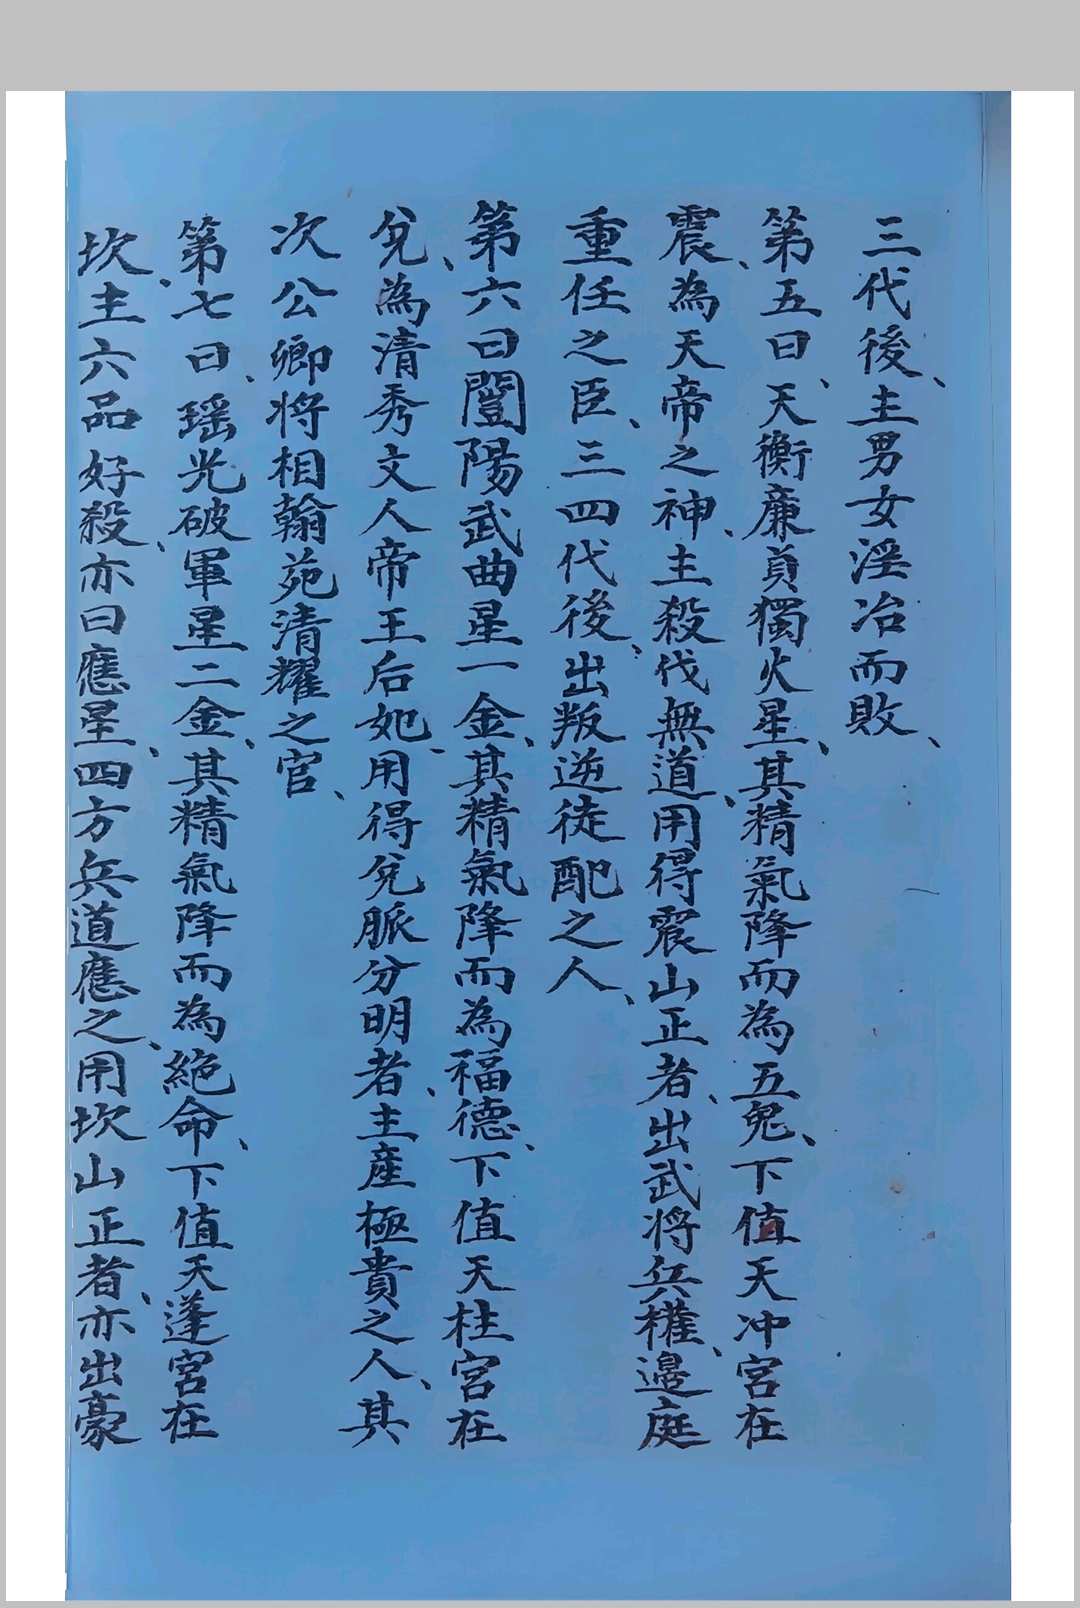 三代後、主男女淫冶而敗、
第五曰、天衡廉貞獨火星、其精氣降而為五鬼、下值天冲宮在
震、為天帝之神、主殺伐無道、用得震山正者、出武将兵權、邊庭
重任之臣、三四代後、出叛逆徒配之人、
第六曰闓陽武曲星一金、其精氣降而為福德、下值天柱宮在
兌、為清秀文人帝王后妃、用得兌脈分明者、主産極貴之人、其
次公卿将相翰苑清耀之官、
第七曰、瑶光破軍星二金、其精氣降而為絶命、下值天蓬宮在
坎、主六品好殺、亦曰應星、四方兵道應之、用坎山正者、亦出豪